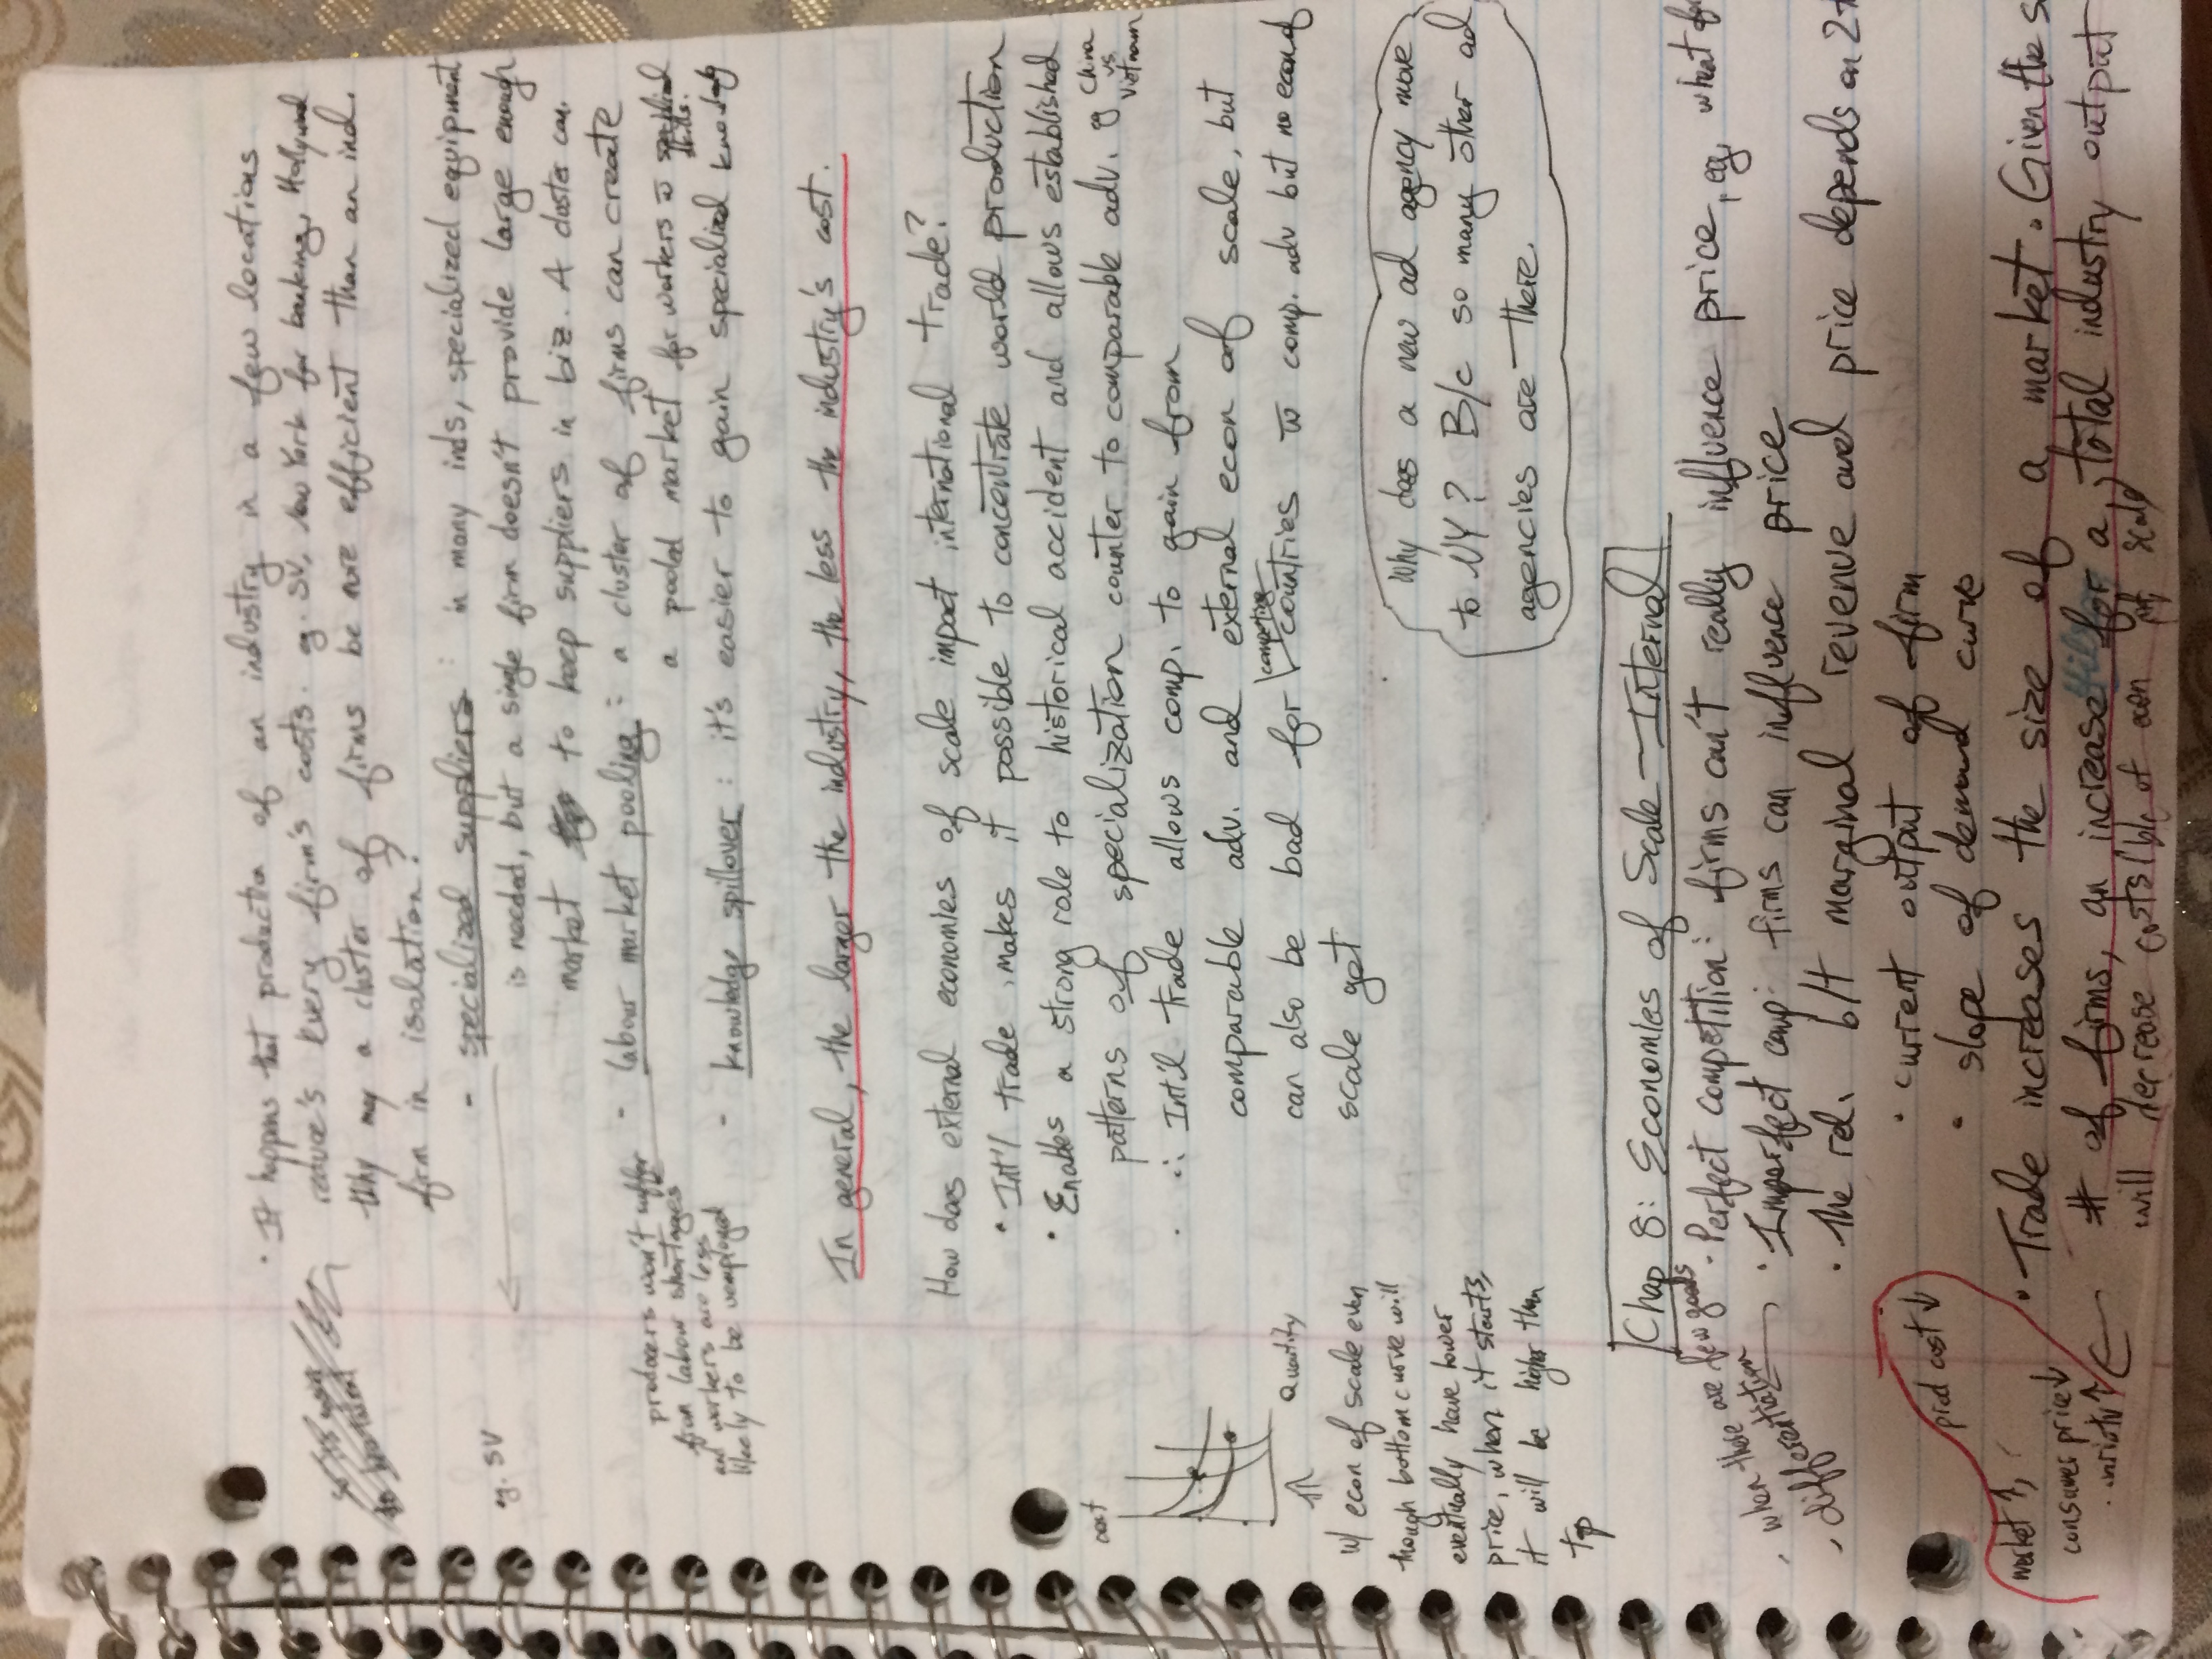 · It happens that production of an industry in a few locations
reduce's every firm's costs. eg. SV, New York for banking, Hollywood
Why may a cluster of firms be more efficient than an ind.
firm in isolation?
- specialized suppliers : in many inds, specialized equipment
is needed, but a single firm doesn't provide large enough
market to keep suppliers in biz. A cluster can.
eg. SV
- labour market pooling : a cluster of firms can create
a pooled market for workers w specialized
skills.
producers won't suffer
from labour shortages
and workers are less
likely to be unemployed
- knowledge spillover : it's easier to gain specialized knowledg
In general, the larger the industry, the less the industry's cost.
How does external economies of scale impact international trade?
· Int'l trade makes it possible to concentrate world production
· Enables a strong role to historical accident and allows established
patterns of specialization counter to comparable adv. eg China
vs
Vietnam
∴ Int'l trade allows comp. to gain from
comparable adv. and external econ of scale, but
can also be bad for competing countries w comp. adv but no econ of
scale get
cost
Quantity
w/ econ of scale even
though bottom curve will
eventually have lower
price, when it starts,
it will be higher than
top
Why does a new ad agency move
to NY? B/c so many other ad
agencies are there.
Chap 8: Economies of Scale - Internal
· Perfect competition: firms can't really influence price, eg, wheat
· Imperfect comp: firms can influence price
- when there are few goods
- differentiation
· The rel. b/t marginal revenue and price depends on 2
· current output of firm
· slope of demand curve
· Trade increases the size of a market. Given the
# of firms, an increase for a total industry output
will decrease costs b/c of econ of scale
prod cost ↓
market ↑,
consumer price ↓